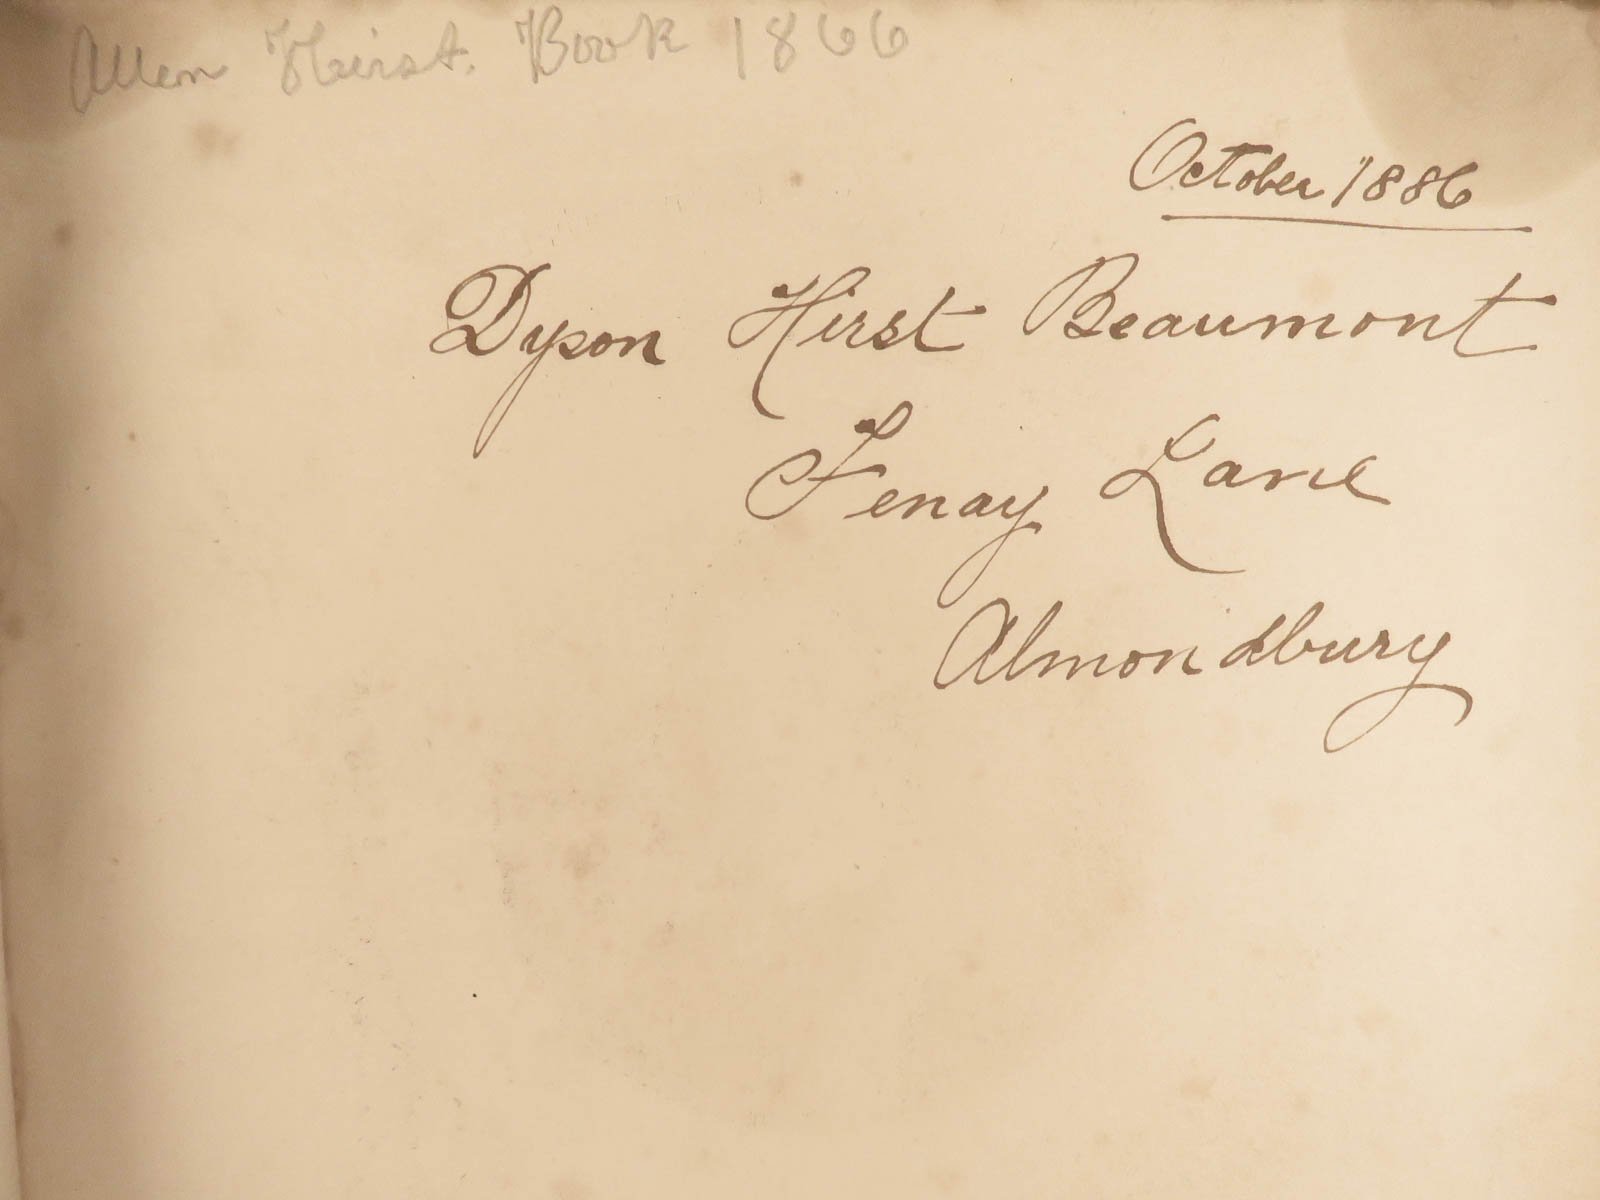 Allen Hirst. Book 1866
October 1886
Dyson Hirst Beaumont
Fenay Lane
Almondbury